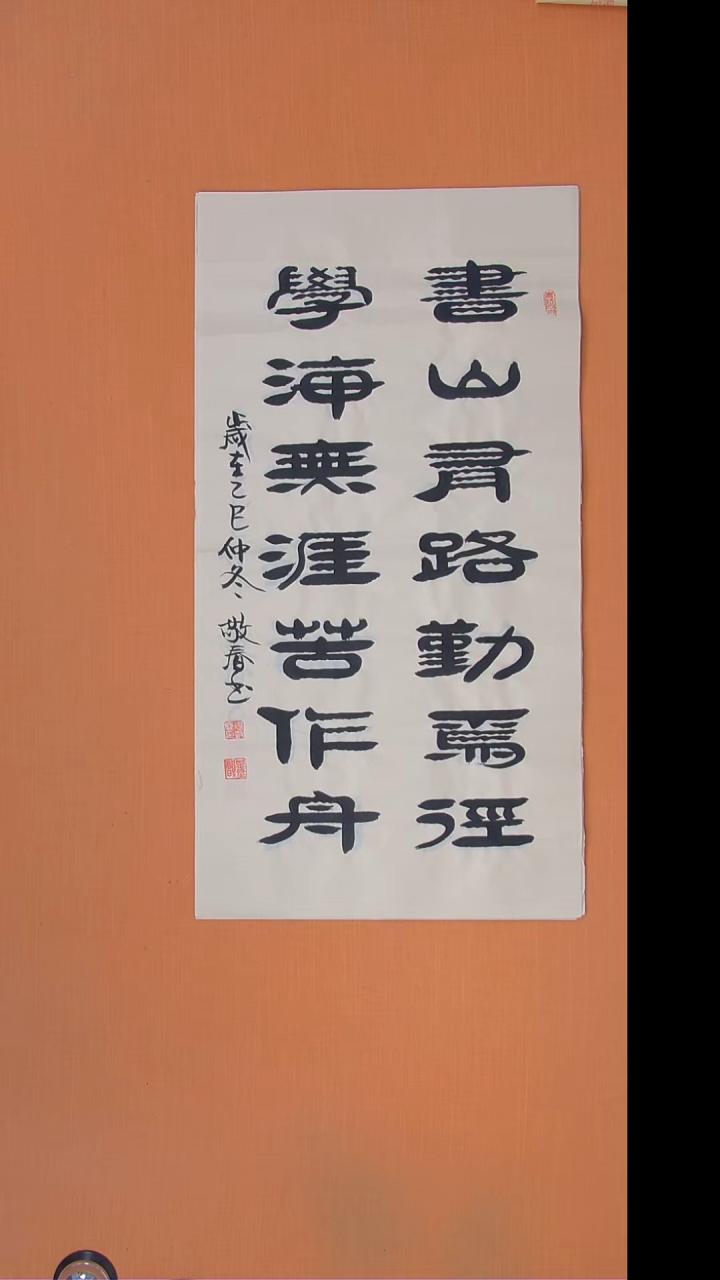 書山有路勤爲徑
學海無涯苦作舟
歲在乙巳仲冬敬春书